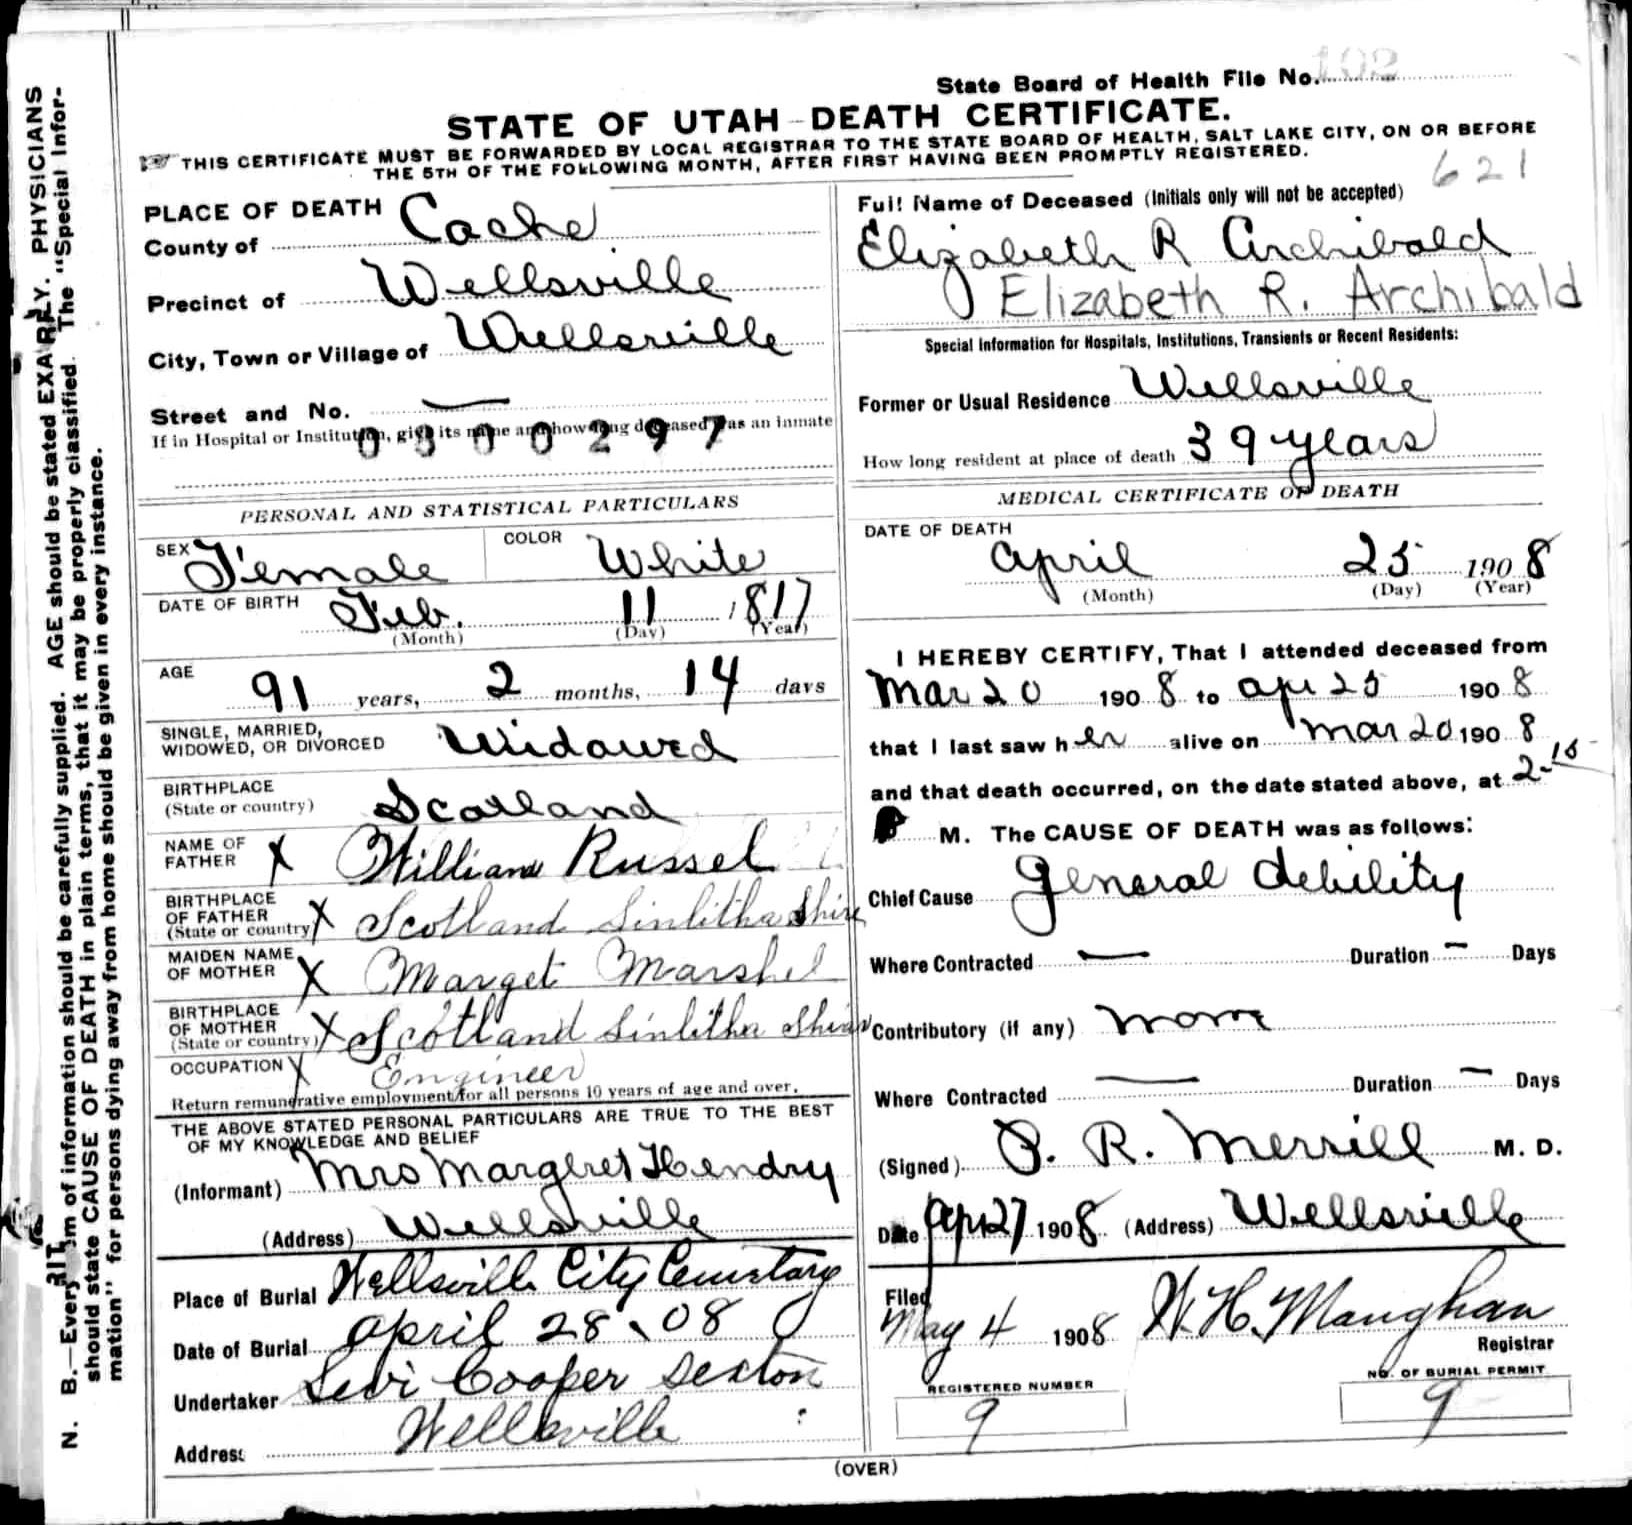 State Board of Health File No. 102
STATE OF UTAH-DEATH CERTIFICATE.
THIS CERTIFICATE MUST BE FORWARDED BY LOCAL REGISTRAR TO THE STATE BOARD OF HEALTH, SALT LAKE CITY, ON OR BEFORE
THE 5TH OF THE FOLLOWING MONTH, AFTER FIRST HAVING BEEN PROMPTLY REGISTERED.
621
PLACE OF DEATH
County of Cache
Precinct of Wellsville
City, Town or Village of Wellsville
Street and No. —
If in Hospital or Institution, give its name and how long deceased was an inmate
0300297
PERSONAL AND STATISTICAL PARTICULARS
SEX Female COLOR White
DATE OF BIRTH Feb. 11 1817
(Month) (Day) (Year)
AGE 91 years, 2 months, 14 days
SINGLE, MARRIED,
WIDOWED, OR DIVORCED Widowed
BIRTHPLACE
(State or country) Scotland
NAME OF
FATHER X William Russel
BIRTHPLACE
OF FATHER
(State or country) X Scotland Linlitha Shire
MAIDEN NAME
OF MOTHER X Marget Marshel
BIRTHPLACE
OF MOTHER
(State or country) X Scotland Linlitha Shire
OCCUPATION X Engineer
Return remunerative employment for all persons 10 years of age and over.
THE ABOVE STATED PERSONAL PARTICULARS ARE TRUE TO THE BEST
OF MY KNOWLEDGE AND BELIEF
(Informant) Mrs Margeret Hendry
(Address) Wellsville
Place of Burial Wellsville City Cemetary
Date of Burial April 28 . 08
Undertaker Levi Cooper Sexton
Address Wellsville
Full Name of Deceased (Initials only will not be accepted)
Elizabeth R Archibald
Elizabeth R. Archibald
Special Information for Hospitals, Institutions, Transients or Recent Residents:
Former or Usual Residence Wellsville
How long resident at place of death 39 years
MEDICAL CERTIFICATE OF DEATH
DATE OF DEATH
April 25 1908
(Month) (Day) (Year)
I HEREBY CERTIFY, That I attended deceased from
Mar 20 1908 to Apr 25 1908
that I last saw her alive on Mar 20 1908
and that death occurred, on the date stated above, at 2-15
P M. The CAUSE OF DEATH was as follows:
Chief Cause General debility
Where Contracted — Duration — Days
Contributory (if any) None
Where Contracted — Duration — Days
(Signed) P. R. Merrill M. D.
Date Apr 27 1908 (Address) Wellsville
Filed
May 4 1908 W. H. Maughan
Registrar
REGISTERED NUMBER
9
NO. OF BURIAL PERMIT
9
(OVER)
N. B.—Every item of information should be carefully supplied. AGE should be stated EXACTLY. PHYSICIANS
should state CAUSE OF DEATH in plain terms, that it may be properly classified. The "Special Infor-
mation" for persons dying away from home should be given in every instance.